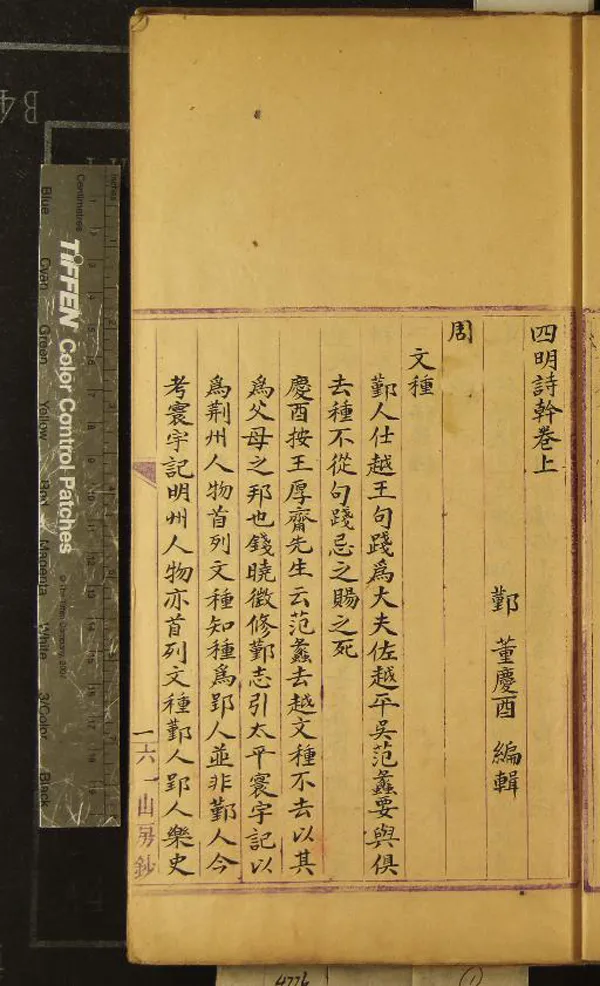 四明詩幹卷上
鄞 董慶酉 編輯
周
文種
鄞人仕越王句踐爲大夫佐越平吳范蠡要與俱
去種不從句踐忌之賜之死
慶酉按王厚齋先生云范蠡去越文種不去以其
爲父母之邦也錢曉徵修鄞志引太平寰宇記以
爲荆州人物首列文種知種爲郢人並非鄞人今
考寰宇記明州人物亦首列文種鄞人郢人樂史
山房鈔
TIFFEN Color Control Patches
© The Tiffen Company, 2007
Centimetres
Inches
Blue
Cyan
Green
Yellow
Red
Magenta
White
3/Color
Black
B4